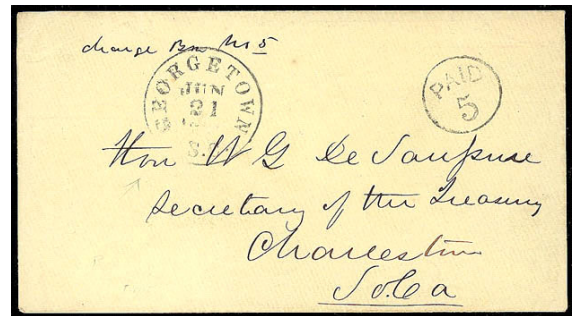 charge Box No 5
GEORGETOWN
JUN
21
S.C.
PAID
5
Hon W G De Saussure
Secretary of the Treasury
Charleston
So. Ca